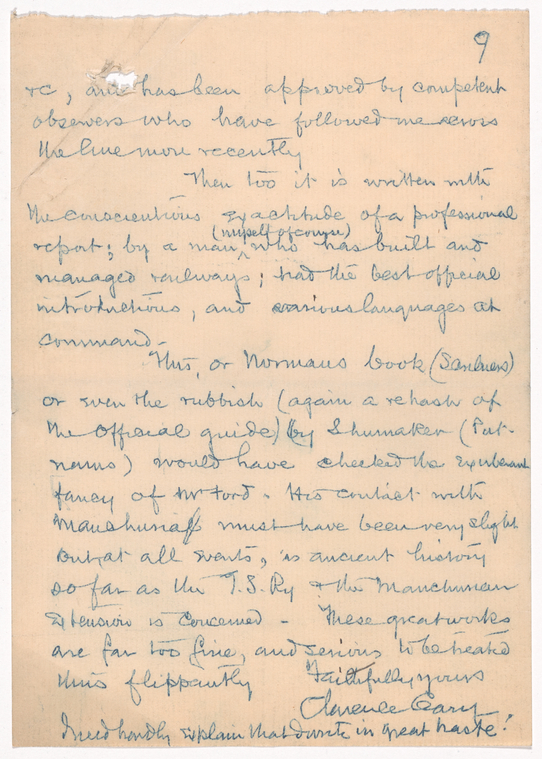 9
&c, and has been approved by competent
observers who have followed me across
the line more recently
Then too it is written with
the conscientious exactitude of a professional
(myself of course)
report; by a man ^ who has built and
managed railways; had the best official
introductions, and various languages at
command -
This, or Normans book (Scribners)
or even the rubbish (again a rehash of
the official guide) by Shumaker (Put-
nams) would have checked the exuberant
fancy of Mr Ford - His contact with
Manchuria must have been very slight
but, at all events, is ancient history
so far as the T.S. Ry & the Manchurian
Extension is concerned - These great works
are far too fine, and serious to be treated
thus flippantly
Faithfully yours
Clarence Cary
I need hardly explain that I write in great haste!